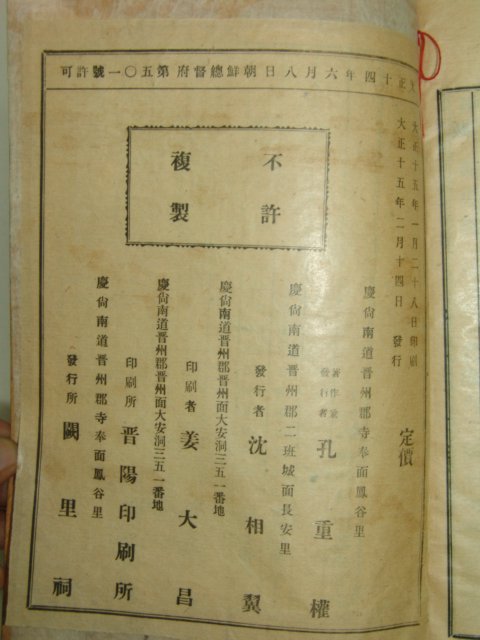 大正十四年六月八日朝鮮總督府第五〇一號許可
大正十五年一月二十八日印刷
大正十五年二月十四日 發行
定價
不許
複製
慶尙南道晋州郡寺奉面鳳谷里
著作兼
發行者 孔重權
慶尙南道晋州郡二班城面長安里
發行者 沈相翼
慶尙南道晋州郡晋州面大安洞三五一番地
印刷者 姜大昌
慶尙南道晋州郡晋州面大安洞三五一番地
印刷所 晋陽印刷所
慶尙南道晋州郡寺奉面鳳谷里
發行所 闕里祠